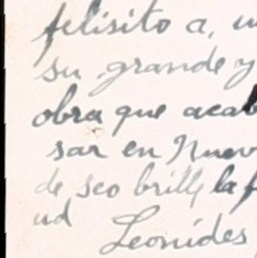 felisito a, u
su grande y
obra que acab
sar en Nuev
de seo brille la f
ud Leonides,